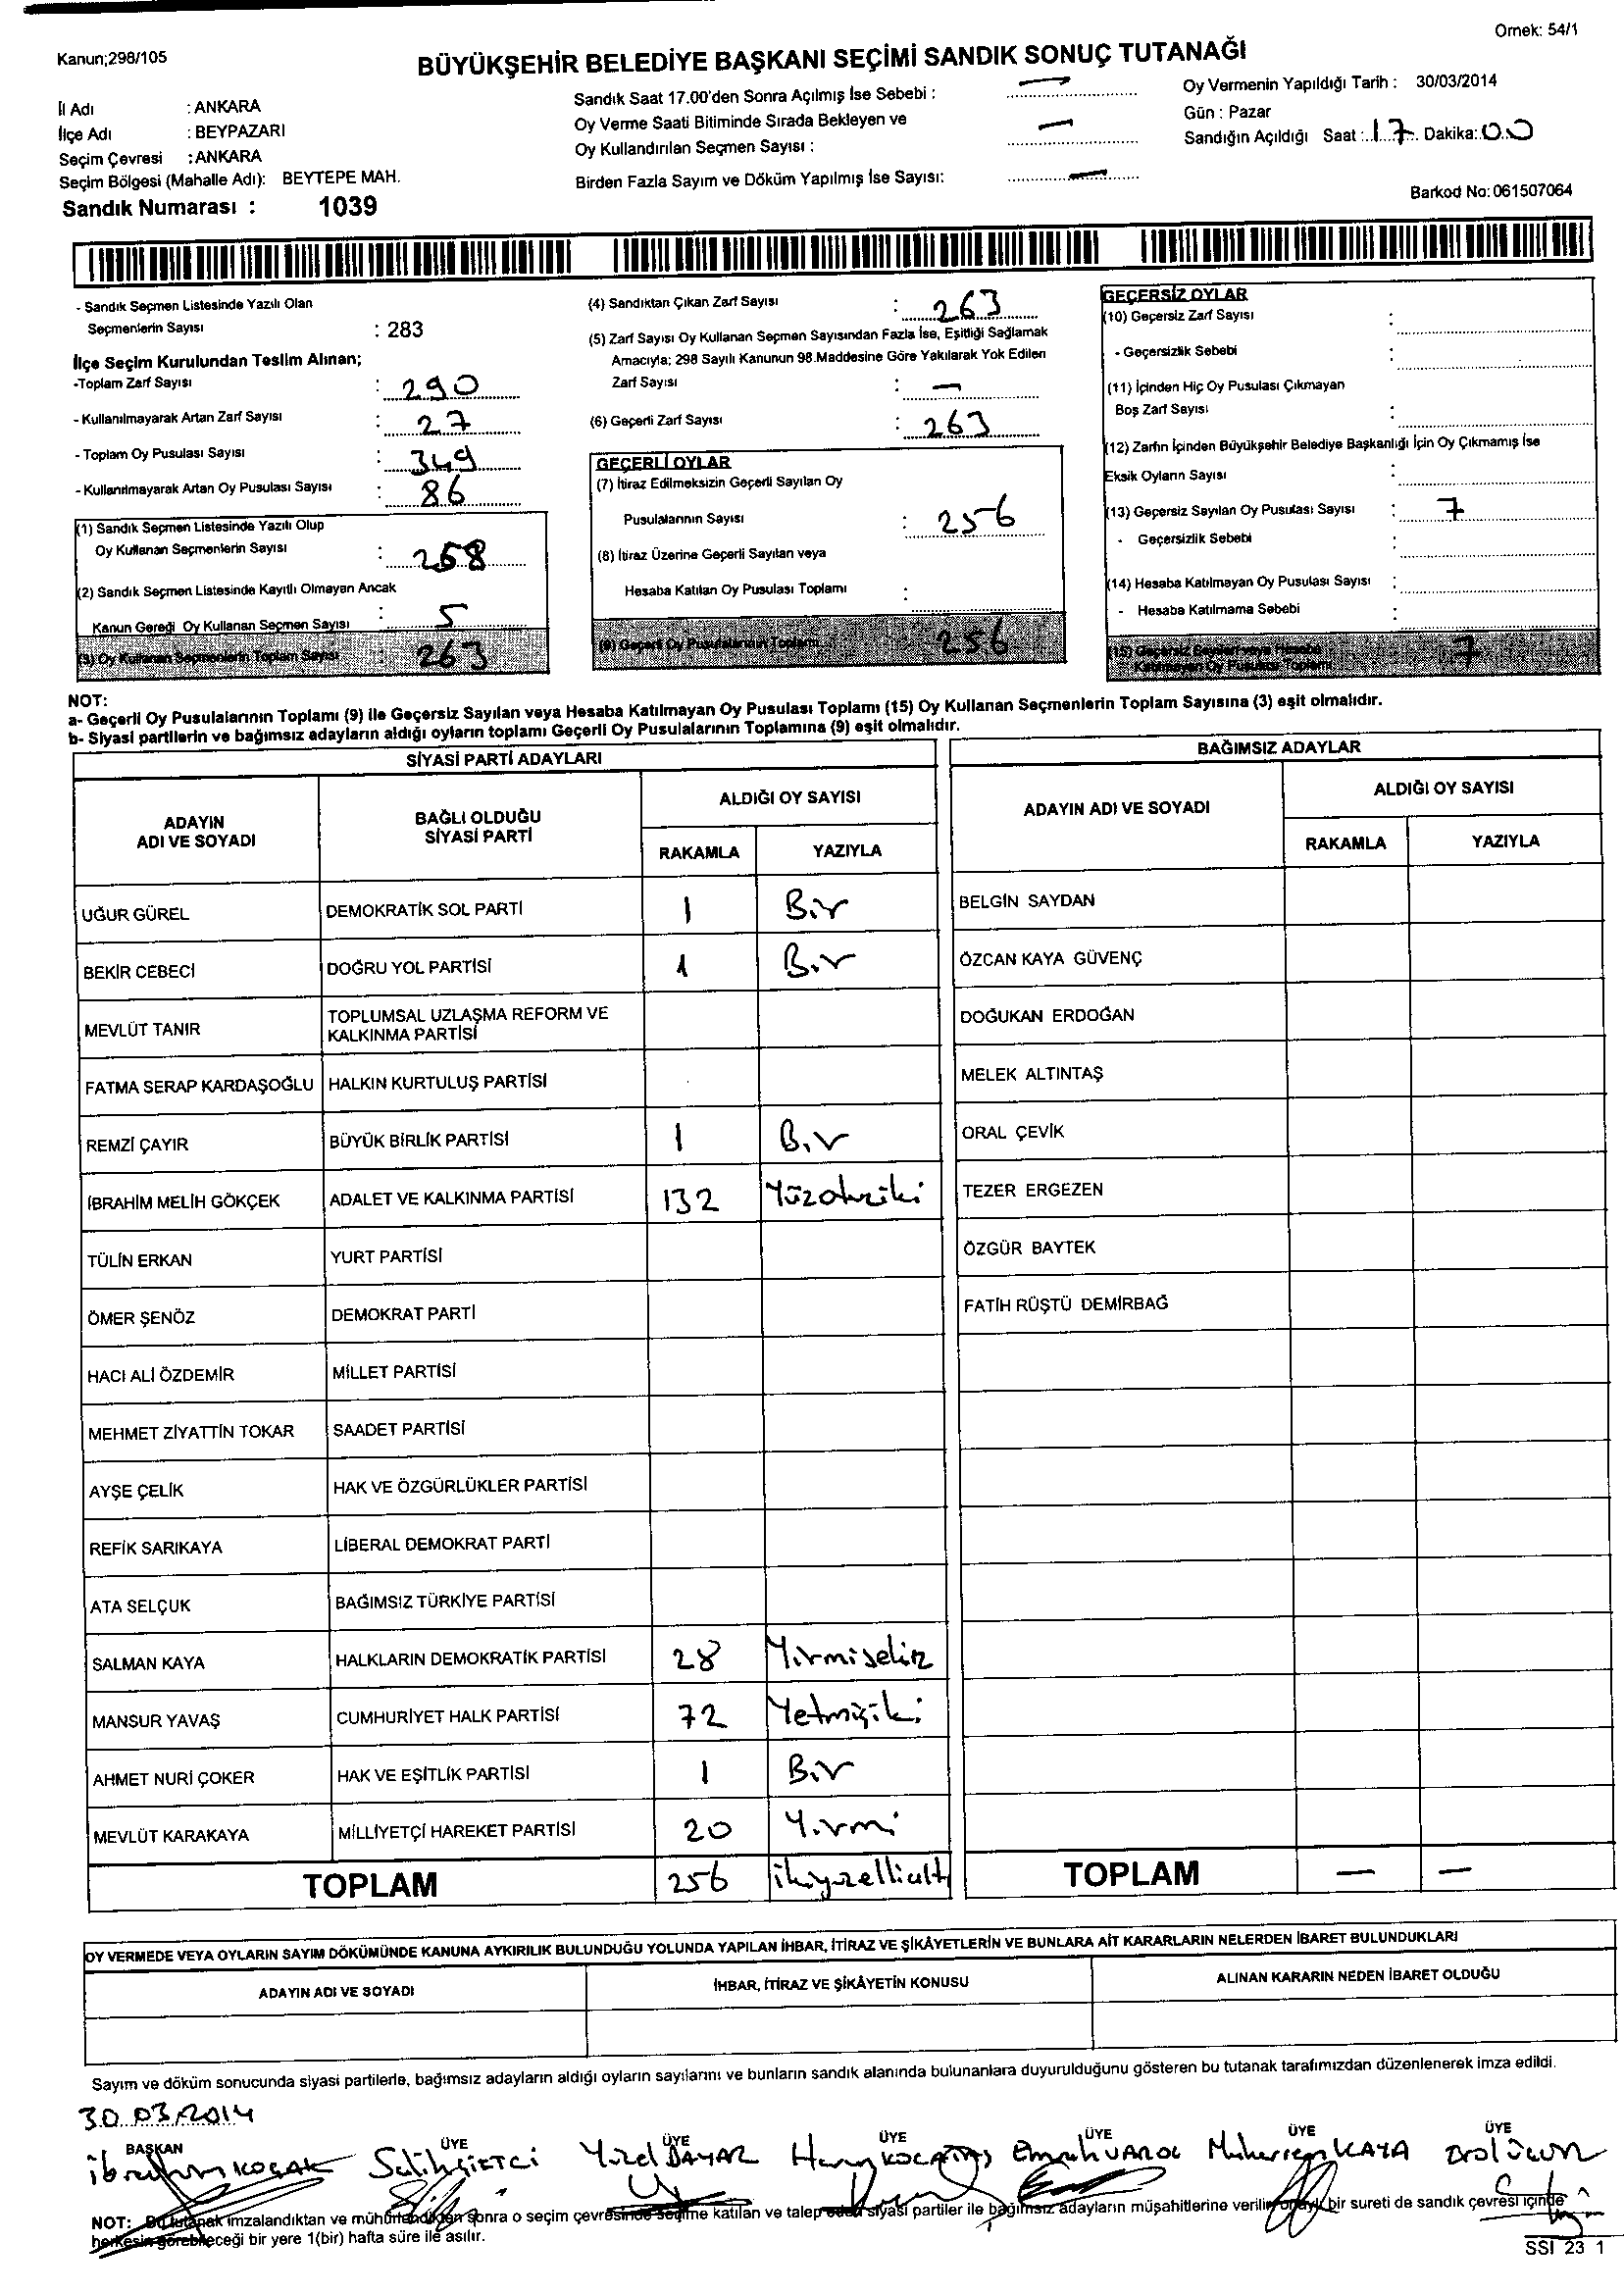 Ornek: 54/1
Kanun;298/105
BÜYÜKŞEHİR BELEDİYE BAŞKANI SEÇİMİ SANDIK SONUÇ TUTANAĞI
İl Adı : ANKARA
İlçe Adı : BEYPAZARI
Seçim Çevresi : ANKARA
Seçim Bölgesi (Mahalle Adı): BEYTEPE MAH.
Sandık Numarası : 1039
Sandık Saat 17.00'den Sonra Açılmış İse Sebebi : —
Oy Verme Saati Bitiminde Sırada Bekleyen ve
Oy Kullandırılan Seçmen Sayısı : —
Birden Fazla Sayım ve Döküm Yapılmış İse Sayısı: —
Oy Vermenin Yapıldığı Tarih : 30/03/2014
Gün : Pazar
Sandığın Açıldığı Saat : 17 Dakika: 00
Barkod No: 061507064
- Sandık Seçmen Listesinde Yazılı Olan
Seçmenlerin Sayısı : 283
İlçe Seçim Kurulundan Teslim Alınan;
-Toplam Zarf Sayısı : 290
- Kullanılmayarak Artan Zarf Sayısı : 27
- Toplam Oy Pusulası Sayısı : 349
- Kullanılmayarak Artan Oy Pusulası Sayısı : 86
(1) Sandık Seçmen Listesinde Yazılı Olup
Oy Kullanan Seçmenlerin Sayısı : 258
(2) Sandık Seçmen Listesinde Kayıtlı Olmayan Ancak
Kanun Gereği Oy Kullanan Seçmen Sayısı : 5
(3) Oy Kullanan Seçmenlerin Toplam Sayısı : 263
(4) Sandıktan Çıkan Zarf Sayısı : 263
(5) Zarf Sayısı Oy Kullanan Seçmen Sayısından Fazla İse, Eşitliği Sağlamak
Amacıyla; 298 Sayılı Kanunun 98.Maddesine Göre Yakılarak Yok Edilen
Zarf Sayısı : —
(6) Geçerli Zarf Sayısı : 263
GEÇERLİ OYLAR
(7) İtiraz Edilmeksizin Geçerli Sayılan Oy
Pusulalarının Sayısı : 256
(8) İtiraz Üzerine Geçerli Sayılan veya
Hesaba Katılan Oy Pusulası Toplamı :
(9) Geçerli Oy Pusulalarının Toplamı : 256
GEÇERSİZ OYLAR
(10) Geçersiz Zarf Sayısı :
- Geçersizlik Sebebi :
(11) İçinden Hiç Oy Pusulası Çıkmayan
Boş Zarf Sayısı :
(12) Zarfın İçinden Büyükşehir Belediye Başkanlığı İçin Oy Çıkmamış İse
Eksik Oyların Sayısı :
(13) Geçersiz Sayılan Oy Pusulası Sayısı : 7
- Geçersizlik Sebebi :
(14) Hesaba Katılmayan Oy Pusulası Sayısı :
- Hesaba Katılmama Sebebi :
(15) Geçersiz Sayılan veya Hesaba
Katılmayan Oy Pusulası Toplamı : 7
NOT:
a- Geçerli Oy Pusulalarının Toplamı (9) ile Geçersiz Sayılan veya Hesaba Katılmayan Oy Pusulası Toplamı (15) Oy Kullanan Seçmenlerin Toplam Sayısına (3) eşit olmalıdır.
b- Siyasi partilerin ve bağımsız adayların aldığı oyların toplamı Geçerli Oy Pusulalarının Toplamına (9) eşit olmalıdır.
SİYASİ PARTİ ADAYLARI
ADAYIN ADI VE SOYADI
BAĞLI OLDUĞU SİYASİ PARTİ
ALDIĞI OY SAYISI
RAKAMLA YAZIYLA
UĞUR GÜREL DEMOKRATİK SOL PARTİ 1 Bir
BEKİR CEBECİ DOĞRU YOL PARTİSİ 1 Bir
MEVLÜT TANIR TOPLUMSAL UZLAŞMA REFORM VE KALKINMA PARTİSİ
FATMA SERAP KARDAŞOĞLU HALKIN KURTULUŞ PARTİSİ
REMZİ ÇAYIR BÜYÜK BİRLİK PARTİSİ 1 Bir
İBRAHİM MELİH GÖKÇEK ADALET VE KALKINMA PARTİSİ 132 Yüzotuziki
TÜLİN ERKAN YURT PARTİSİ
ÖMER ŞENÖZ DEMOKRAT PARTİ
HACI ALİ ÖZDEMİR MİLLET PARTİSİ
MEHMET ZİYATTİN TOKAR SAADET PARTİSİ
AYŞE ÇELİK HAK VE ÖZGÜRLÜKLER PARTİSİ
REFİK SARIKAYA LİBERAL DEMOKRAT PARTİ
ATA SELÇUK BAĞIMSIZ TÜRKİYE PARTİSİ
SALMAN KAYA HALKLARIN DEMOKRATİK PARTİSİ 28 Yirmisekiz
MANSUR YAVAŞ CUMHURİYET HALK PARTİSİ 72 Yetmişiki
AHMET NURİ ÇOKER HAK VE EŞİTLİK PARTİSİ 1 Bir
MEVLÜT KARAKAYA MİLLİYETÇİ HAREKET PARTİSİ 20 Yirmi
TOPLAM 256 ikiyüzellialtı
BAĞIMSIZ ADAYLAR
ADAYIN ADI VE SOYADI
ALDIĞI OY SAYISI
RAKAMLA YAZIYLA
BELGİN SAYDAN
ÖZCAN KAYA GÜVENÇ
DOĞUKAN ERDOĞAN
MELEK ALTINTAŞ
ORAL ÇEVİK
TEZER ERGEZEN
ÖZGÜR BAYTEK
FATİH RÜŞTÜ DEMİRBAĞ
TOPLAM — —
OY VERMEDE VEYA OYLARIN SAYIM DÖKÜMÜNDE KANUNA AYKIRILIK BULUNDUĞU YOLUNDA YAPILAN İHBAR, İTİRAZ VE ŞİKÂYETLERİN VE BUNLARA AİT KARARLARIN NELERDEN İBARET BULUNDUKLARI
ADAYIN ADI VE SOYADI İHBAR, İTİRAZ VE ŞİKÂYETİN KONUSU ALINAN KARARIN NEDEN İBARET OLDUĞU
Sayım ve döküm sonucunda siyasi partilerle, bağımsız adayların aldığı oyların sayılarını ve bunların sandık alanında bulunanlara duyurulduğunu gösteren bu tutanak tarafımızdan düzenlenerek imza edildi.
30.03.2014
BAŞKAN ÜYE ÜYE ÜYE ÜYE ÜYE ÜYE
İbrahim KOÇAK Salih Yüzel Harun Emrah VAROL Muharrem KAYA
NOT: Bu tutanak imzalandıktan ve mühürlendikten sonra o seçim çevresinde seçime katılan ve talep eden siyasi partiler ile bağımsız adayların müşahitlerine verilir, onaylı bir sureti de sandık çevresi içinde
herkesin görebileceği bir yere 1(bir) hafta süre ile asılır.
SSI 23 1